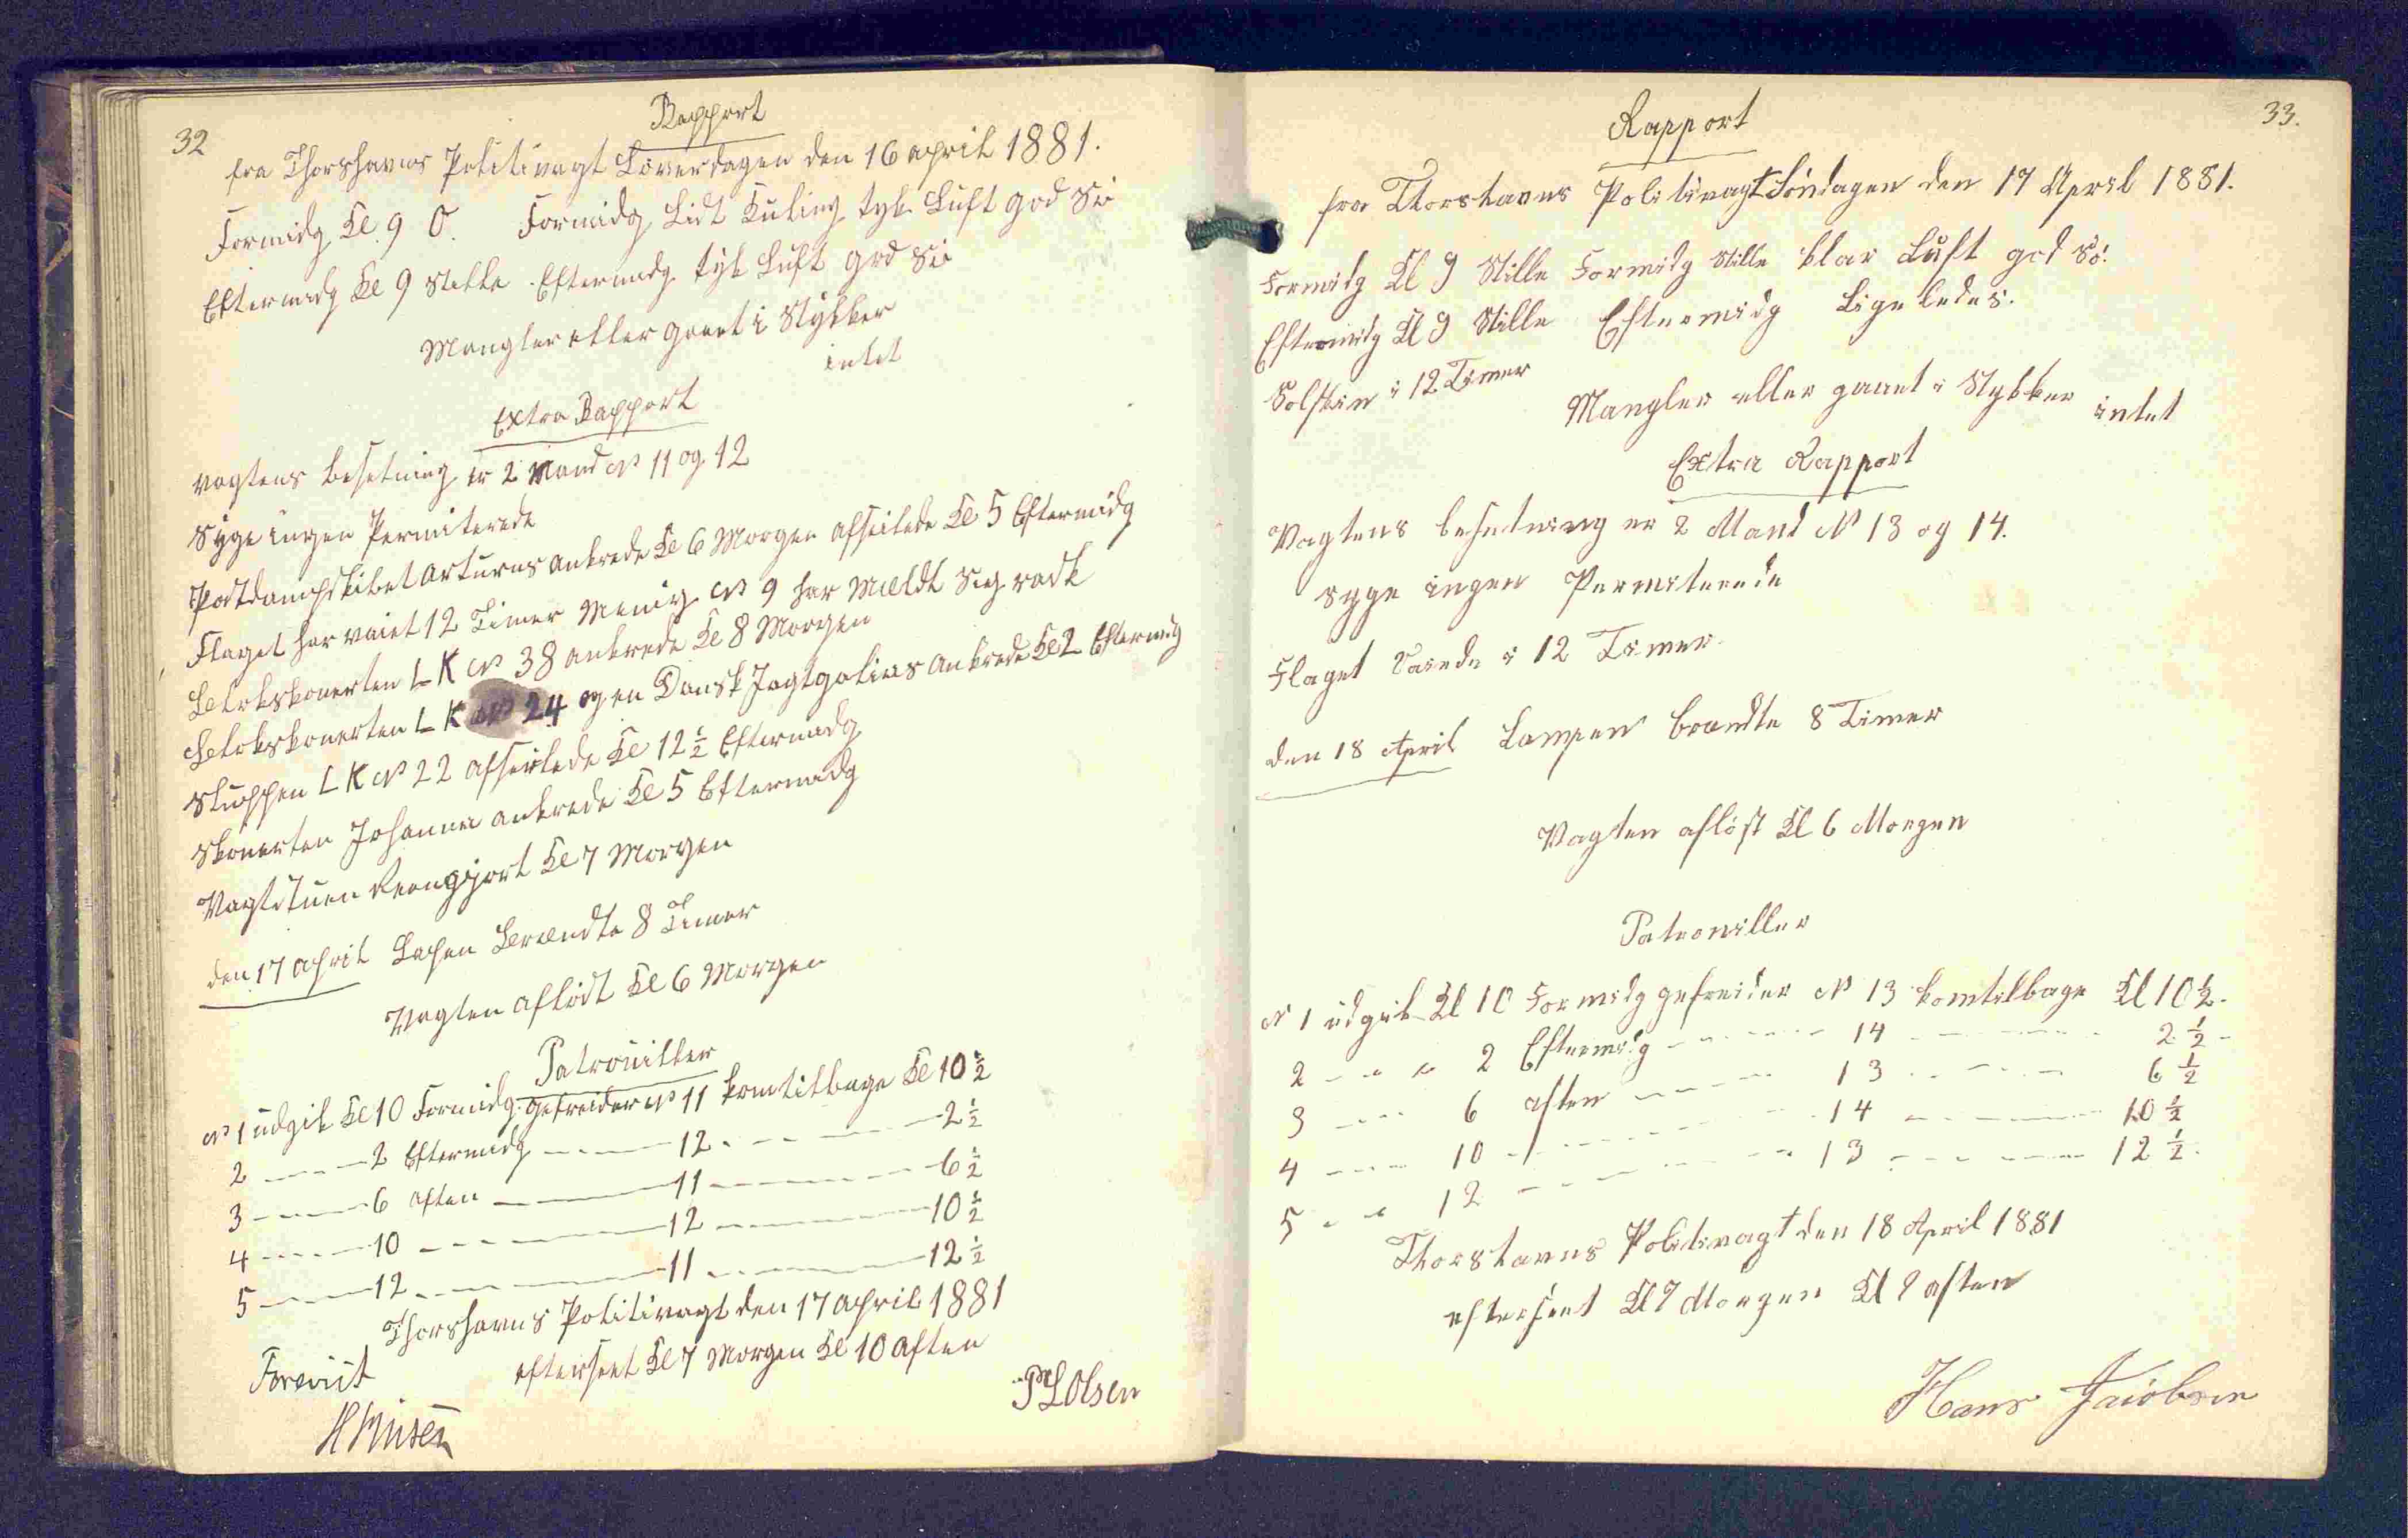 32
Rapport
fra Thorshavns Politivagt Løverdagen den 16 april 1881.
Formidg Kl. 9 O. Formidg Lidt Kuling tyk Luft god Sø
Eftermidg Kl 9 Stille. Eftermidg tyk Luft god Sø
Mangler eller gaaet i Stykker
intet
Extra Rapport
Vagtens Besetning er 2 Mand No 11 og 12
Syge ingen Permiterede
Postdampskibet Arturus ankrede Kl 6 Morgen afseilede Kl 5 Eftermidg
Flaget har vaiet 12 Timer Menig No 9 har Mældt sig rask
Slokskonerten L K No 38 ankrede Kl 8 Morgen
Slokskonerten L K No 24 og en Dansk Jagtgalias ankrede Kl 2 Eftermidg
Sluppen L K No 22 afseilede Kl 12 1/2 Eftermidg
Skonerten Johanna ankrede Kl 5 Eftermidg
Vagtstuen Reengjort Kl 7 Morgen
den 17 april Lapen Brændte 8 Timer
Vagten afløst Kl 6 Morgen
Patrouiller
No 1 udgik Kl 10 Formidg. gefreider No 11 komtilbage Kl 10 1/2
2 — — 2 Eftermidg — — 12 — — 2 1/2
3 — — 6 aften — — 11 — — 6 1/2
4 — — 10 — — 12 — — 10 1/2
5 — — 12 — — 11 — — 12 1/2
Thorshavns Politivagt den 17 april 1881
Forevist efterseet Kl 7 Morgen Kl 10 aften
P Olsen
33.
Rapport
fra Thorshavns Politivagt Søndagen den 17 April 1881.
Formidg Kl 9 Stille Formidg Stille klar Luft god Sø.
Eftermidg Kl 9 Stille Eftermidg Ligeledes.
Solskin i 12 Timer
Mangler eller gaaet i Stykker intet
Extra Rapport
Vagtens besetning er 2 Mand No 13 og 14.
syge ingen Permiterede
Flaget Vaiede i 12 Timer.
den 18 April Lampen brændte 8 Timer
Vagten afløst Kl 6 Morgen
Patrouiller
No 1 udgik Kl 10 Formidg gefreider No 13 komtilbage Kl 10 1/2.
2 - - - 2 Eftermidg - - - 14 - - - 2 1/2 -
3 - - - 6 aften - - - 13 - - - 6 1/2
4 - - - 10 - - - 14 - - - 10 1/2
5 - - 12 - - - 13 - - - 12 1/2.
Thorshavns Politivagt den 18 April 1881
efterseet Kl 7 Morgen Kl 9 aften
Hans Jacobsen